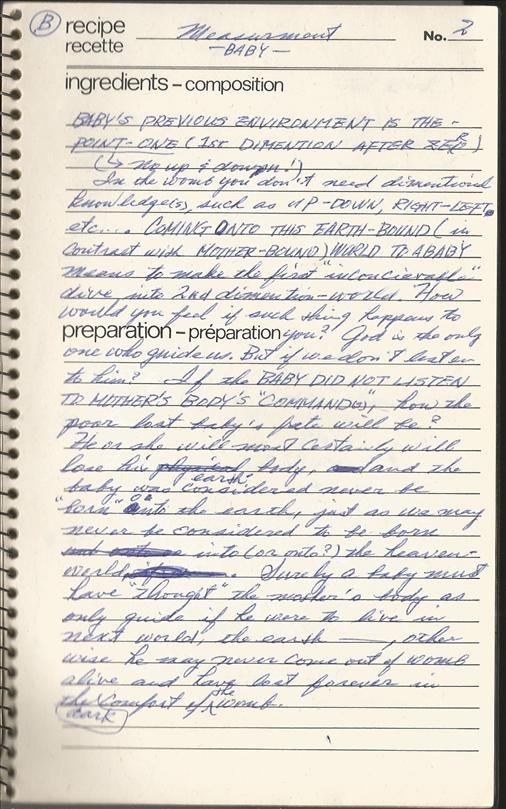 (B) recipe Measurment No. 2
recette — BABY —
ingredients – composition
BABY'S PREVIOUS ENVIRONMENT IS THE -
POINT-ONE (1ST DIMENTION AFTER ZERO)
(↳ No up & down!)
In the womb you don't need dimentional
knowledge(s), such as UP-DOWN, RIGHT-LEFT,
etc.... COMING ONTO THIS EARTH-BOUND (in
contrast with MOTHER-BOUND) WORLD TO A BABY
means to make the first "inconcievable"
dive into 2nd dimention-world. How
would you feel if such thing happens to
preparation – préparation you? God is the only
one who guide us. But if we don't listen
to him? If the BABY DID NOT LISTEN
TO MOTHER'S BODY'S "COMMAND(S)", how the
poor lost baby's fate will be?
He or she will most certainly will
lose his physical earth-body, and and the
baby was considered never be
"born" onto the earth, just as we may
never be considered to be born
into (or onto?) the heaven-
world. Surely a baby must
have "thought" the mother's body as
only guide if he were to live in
next world, the earth —, other
wise he may never come out of womb
alive and have lost forever in
the dark comfort of the womb.